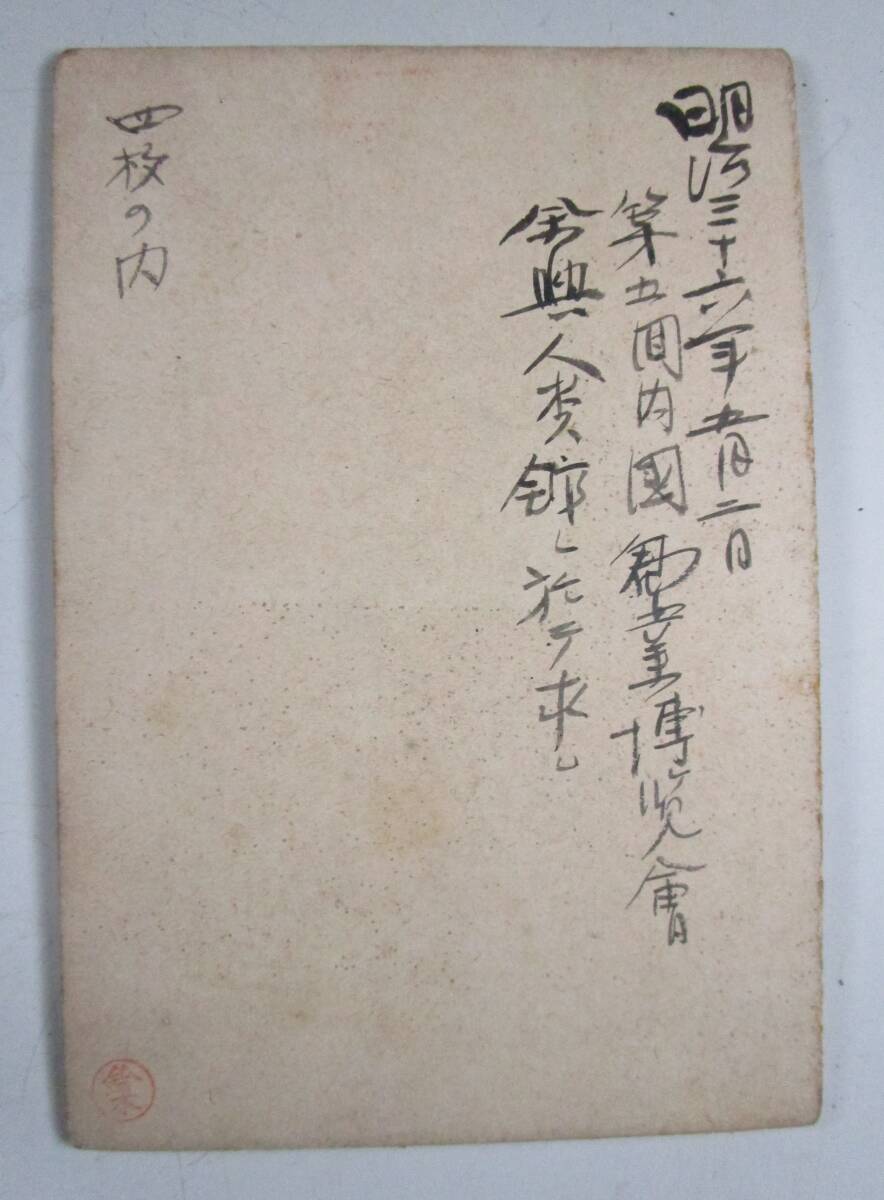 明治三十六年五月二日
第五囘内國勧業博覧會
余興人类館ニ於テ求ム
四枚の内
鈴木